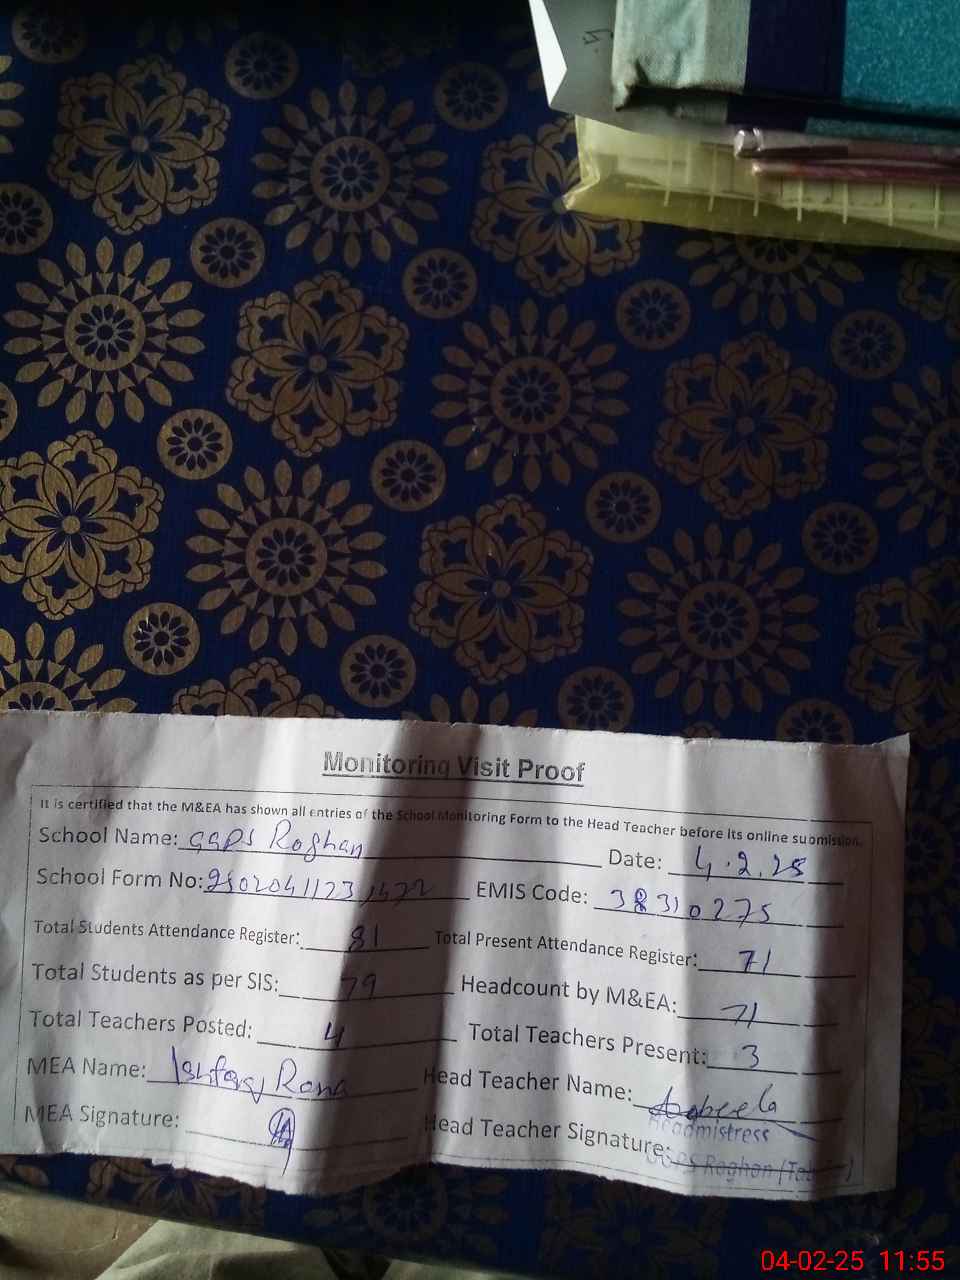 Monitoring Visit Proof
It is certified that the M&EA has shown all entries of the School Monitoring Form to the Head Teacher before its online submission.
School Name: GGPS Roghan Date: 4.2.25
School Form No: EMIS Code: 38310275
Total Students Attendance Register: 81 Total Present Attendance Register: 71
Total Students as per SIS: 79 Headcount by M&EA: 71
Total Teachers Posted: 4 Total Teachers Present: 3
MEA Name: Ishfaq Rana Head Teacher Name:
MEA Signature: Head Teacher Signature:
Headmistress
GGPS Roghan
04-02-25 11:55